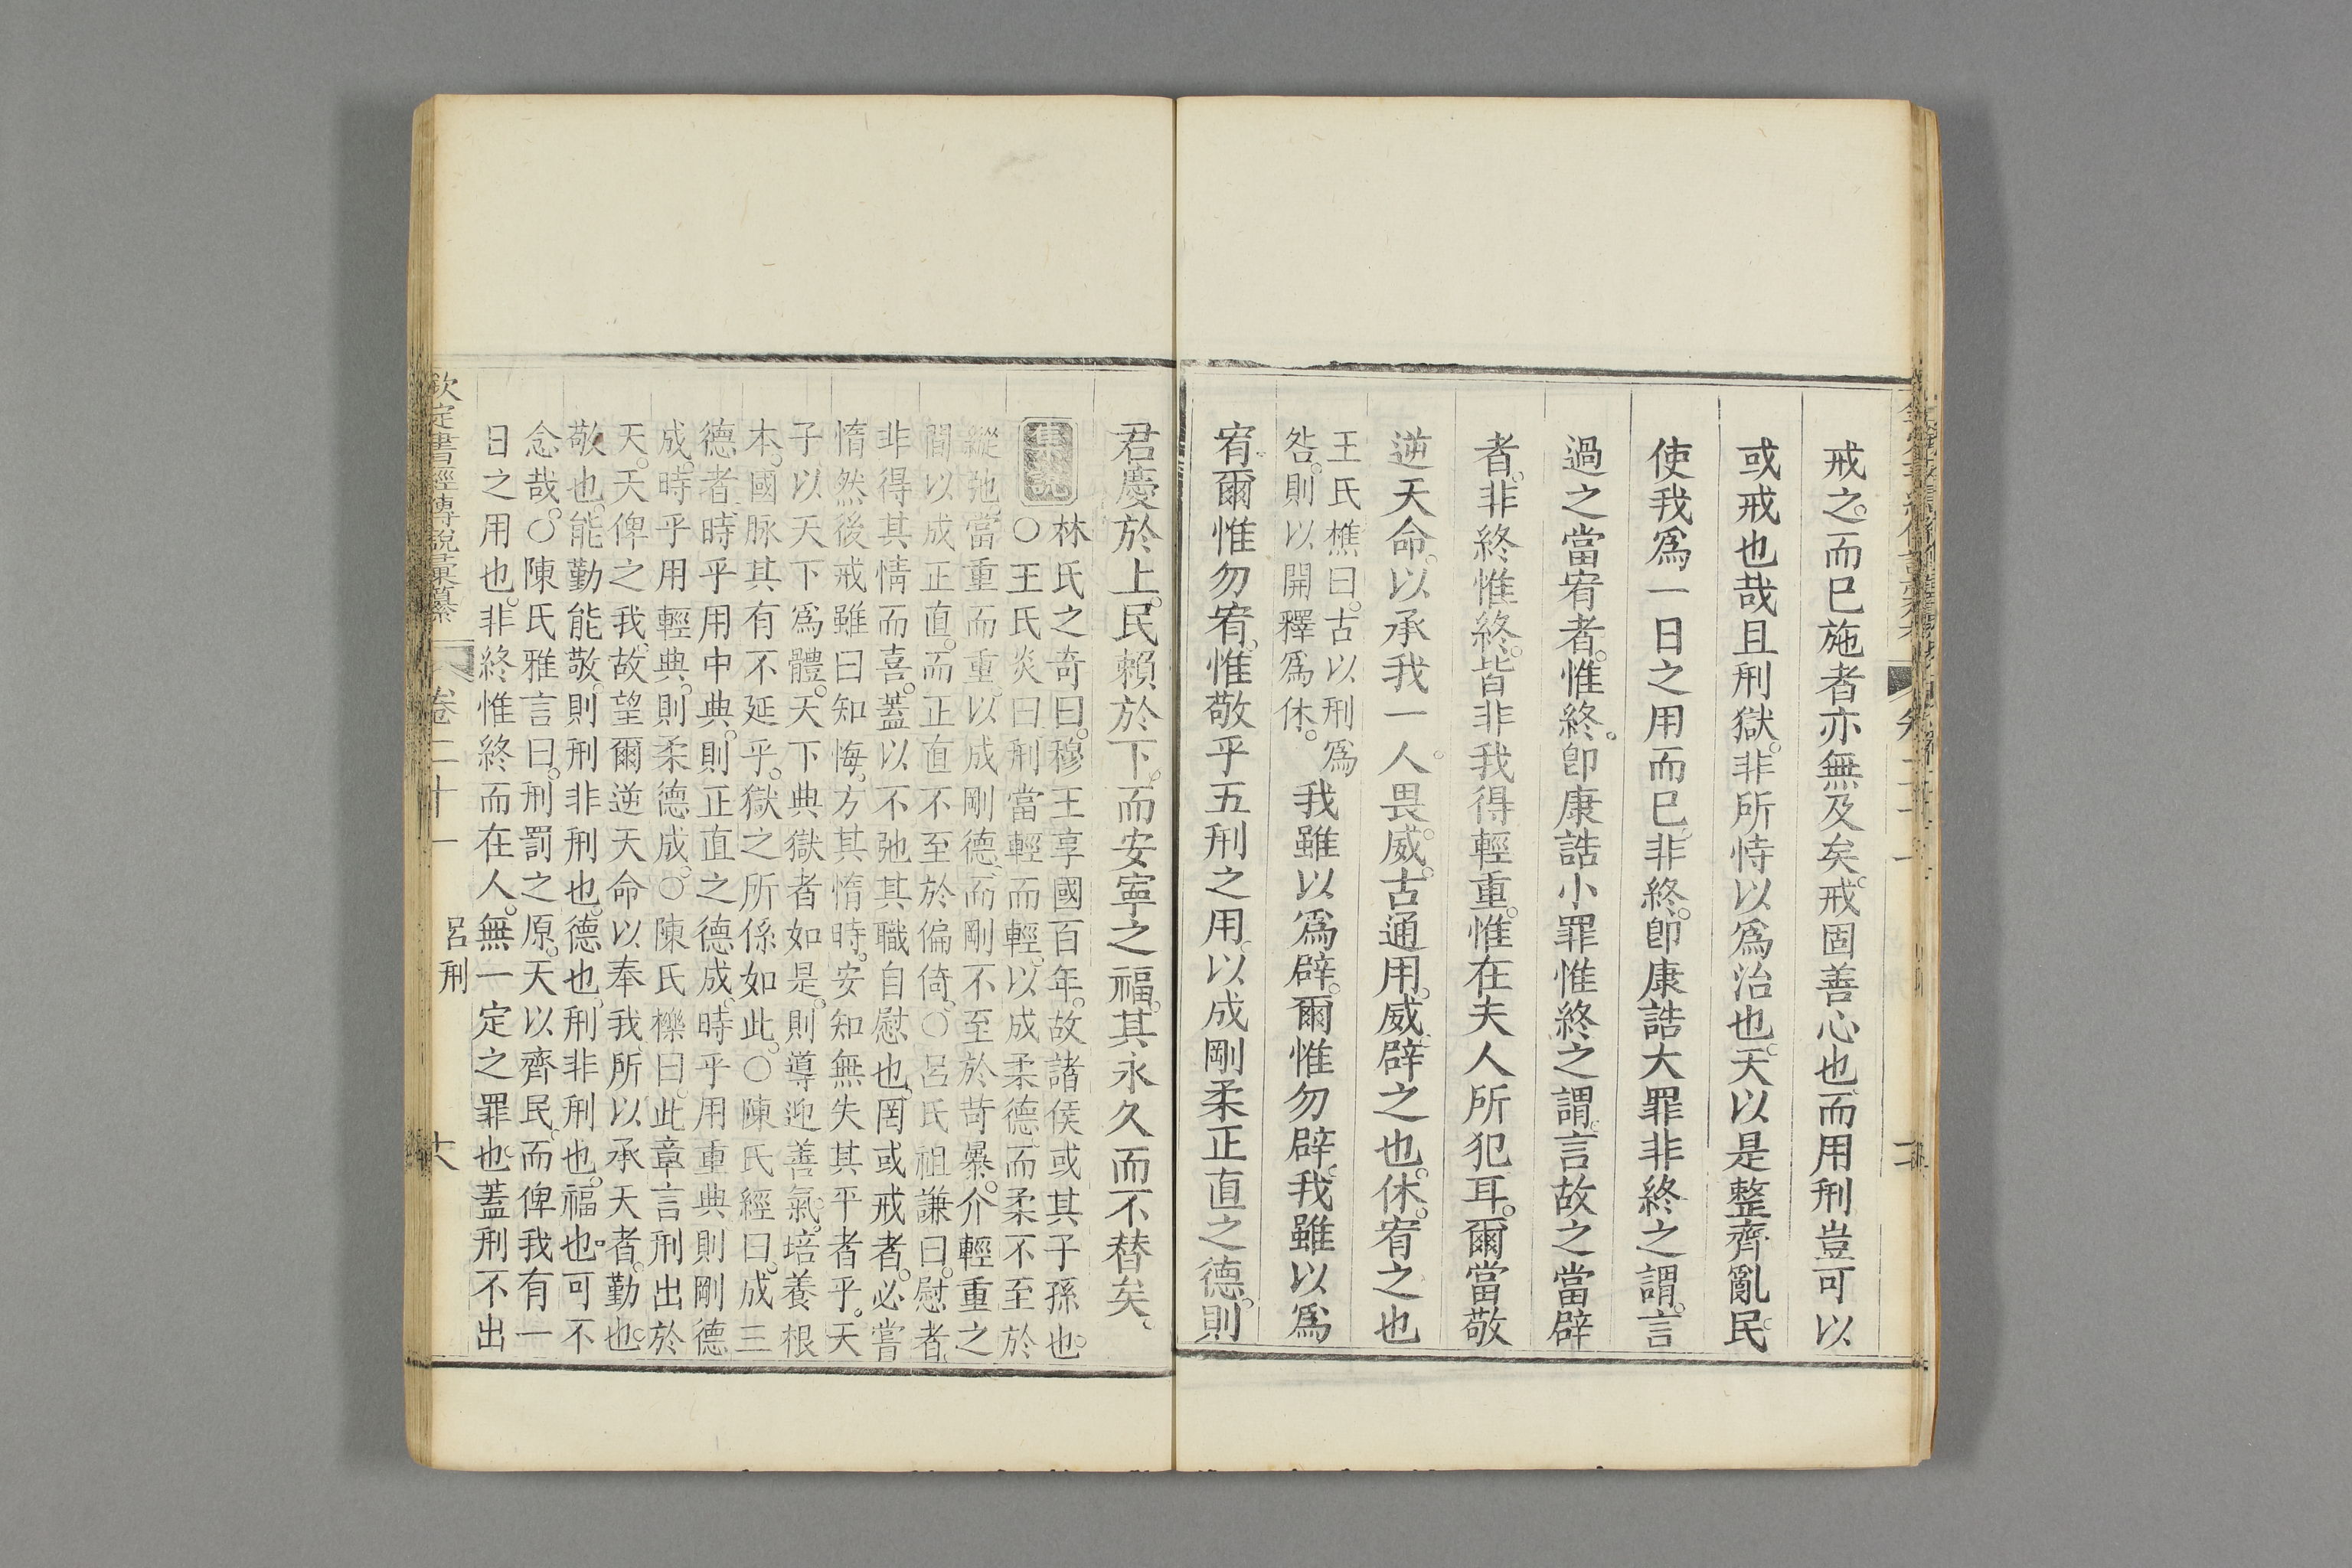 戒之。而已施者亦無及矣。戒固善心也。而用刑豈可以
或戒也哉且刑獄。非所恃以爲治也。天以是整齊亂民。
使我爲一日之用而已。非終。卽康誥大罪非終之謂。言
過之當宥者。惟終。卽康誥小罪惟終之謂。言故之當辟
者。非終惟終。皆非我得輕重。惟在夫人所犯耳。爾當敬
逆天命。以承我一人。畏威。古通用。威。辟之也。休。宥之也
王氏樵曰。古以刑爲
咎。則以開釋爲休。
我雖以爲辟。爾惟勿辟。我雖以爲
宥。爾惟勿宥。惟敬乎五刑之用。以成剛柔正直之德。則
君慶於上。民賴於下。而安寧之福。其永久而不替矣。
集說
林氏之奇曰。穆王享國百年。故諸侯或其子孫也。
○王氏炎曰。刑當輕而輕。以成柔德。而柔不至於
縱弛。當重而重。以成剛德。而剛不至於苛暴。介輕重之
間以成正直。而正直不至於偏倚。○呂氏祖謙曰。慰者
非得其情而喜。蓋以不弛其職自慰也。罔或戒者。必嘗
惰然後戒雖曰知悔。方其惰時。安知無失其平者乎。天
子以天下爲體。天下典獄者如是。則導迎善氣。培養根
本。國脉其有不延乎。獄之所係如此。○陳氏經曰。成三
德者。時乎用中典。則正直之德成。時乎用重典則剛德
成。時乎用輕典。則柔德成。○陳氏櫟曰。此章言刑出於
天。天俾之我。故望爾逆天命以奉我。所以承天者。勤也。
敬也。能勤能敬。則刑非刑也。德也。刑非刑也。福也。可不
念哉。○陳氏雅言曰。刑罰之原。天以齊民。而俾我有一
日之用也。非終惟終而在人。無一定之罪也。蓋刑不出
欽定書經傳說彙纂 卷二十一 呂刑